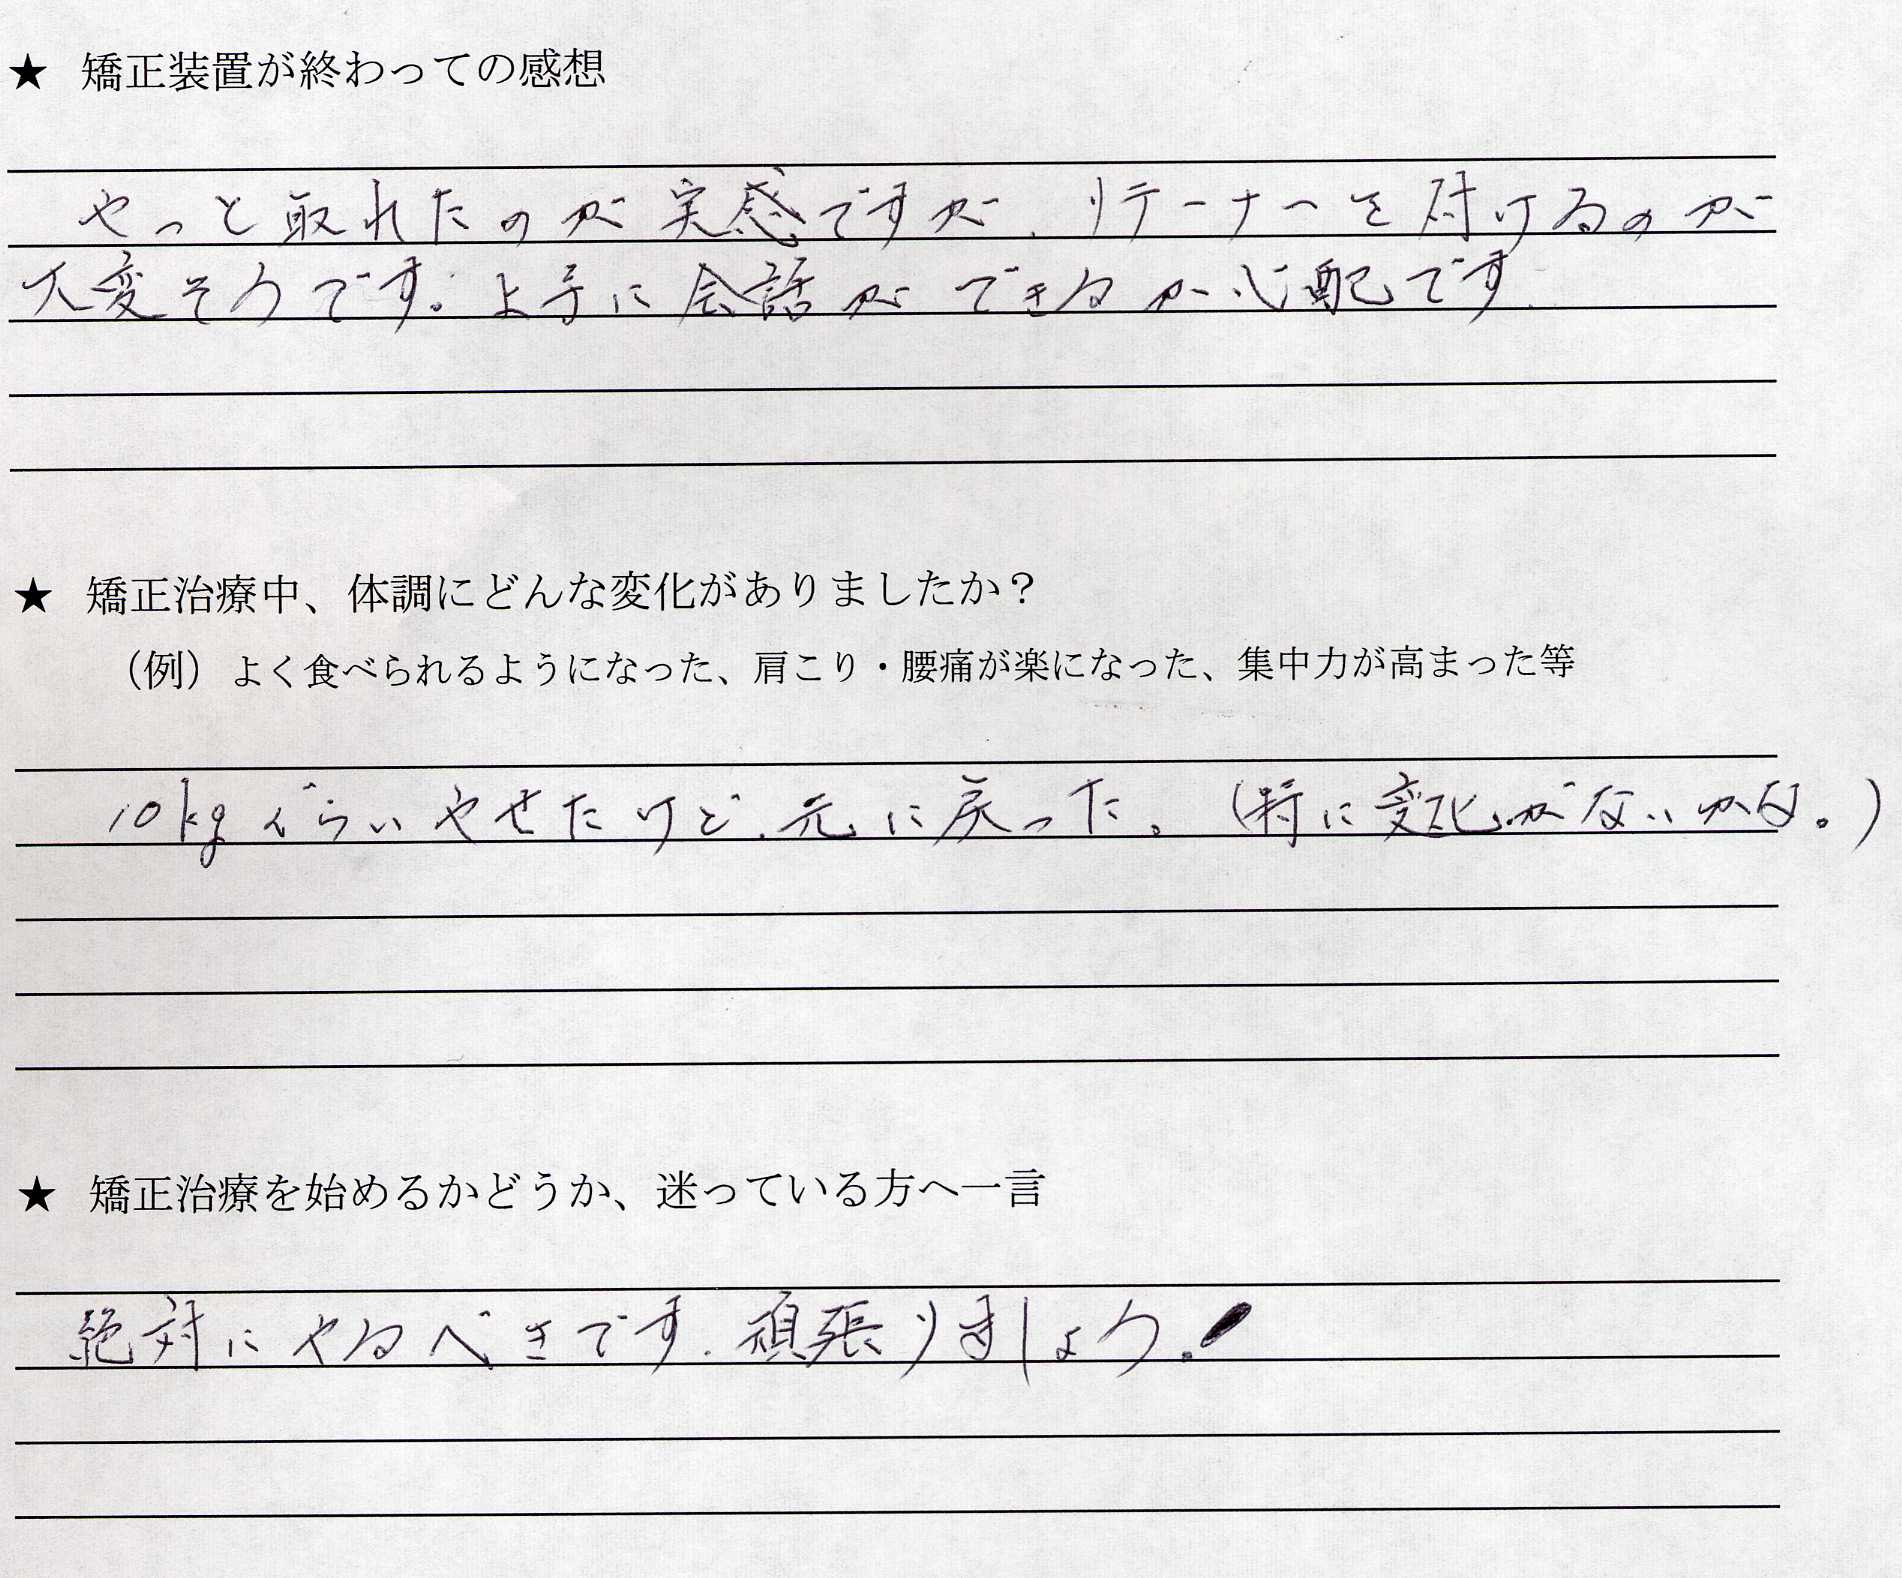 ★ 矯正装置が終わっての感想
やっと取れたのが実感ですが、リテーナーを付けるのが
大変そうです。上手に会話ができるか心配です。
★ 矯正治療中、体調にどんな変化がありましたか？
（例）よく食べられるようになった、肩こり・腰痛が楽になった、集中力が高まった等
10kgぐらいやせたけど、元に戻った。（特に変化がないかな。）
★ 矯正治療を始めるかどうか、迷っている方へ一言
絶対にやるべきです。頑張りましょう。